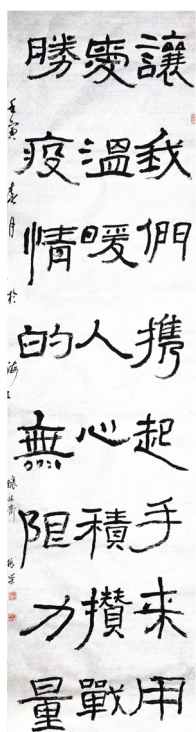 讓我們携起手来用
愛溫暖人心積攢戰
勝疫情的無阻力量
壬寅春月於海上